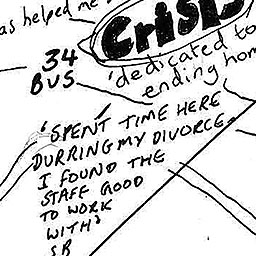 as helped me
Crisis
'dedicated to
ending hom
34
BUS
'SPENT TIME HERE
DURRING MY DIVORCE.
I FOUND THE
STAFF GOOD
TO WORK
WITH'
SB